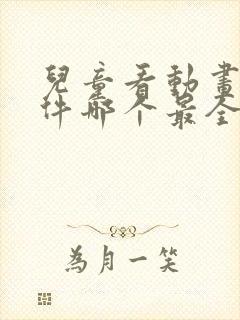 兒童看動畫
件哪个最全
為月一笑